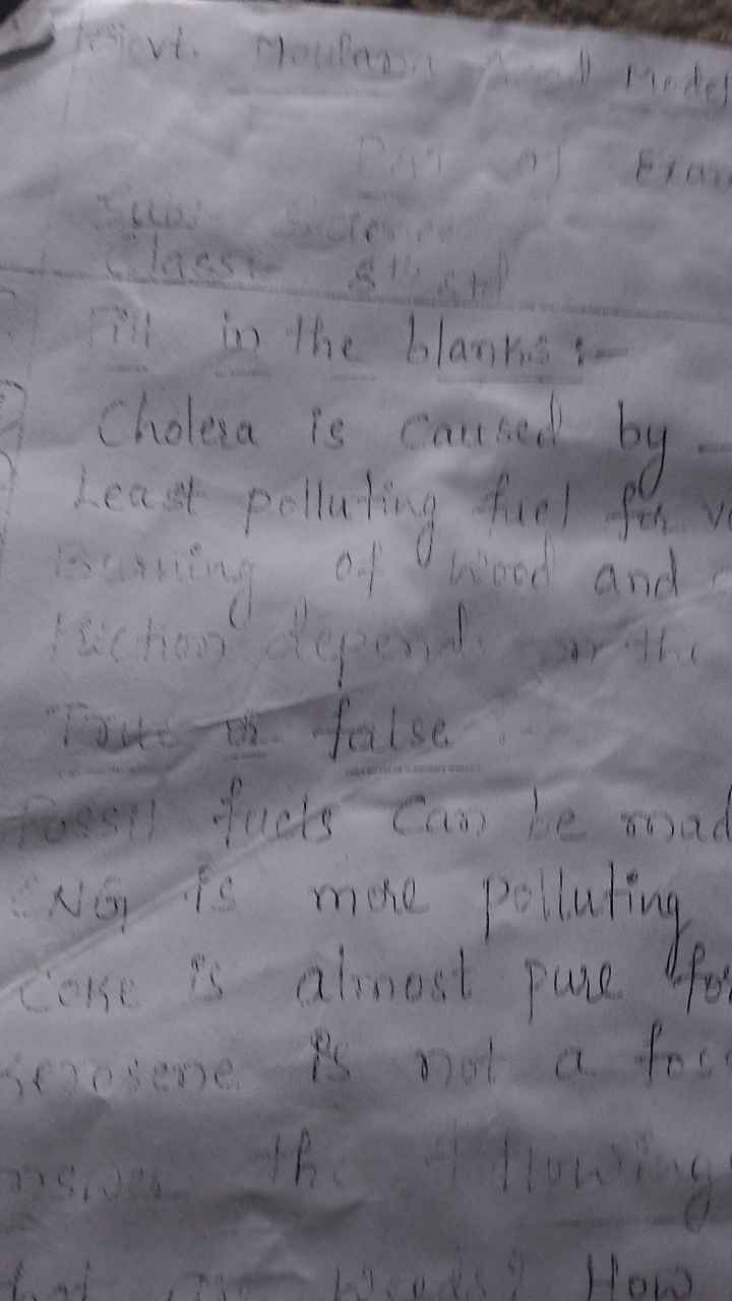 Govt. Moulana Azad Model
Exam
Sub:- Science
Class:- 8th std
Fill in the blanks :-
Cholera is caused by
Least polluting fuel for
Burning of wood and
Friction depends on the
True or false
Fossil fuels can be mad
CNG is more polluting
Coke is almost pure for
Kerosene is not a fos
Answer the following
What are Weeds? How